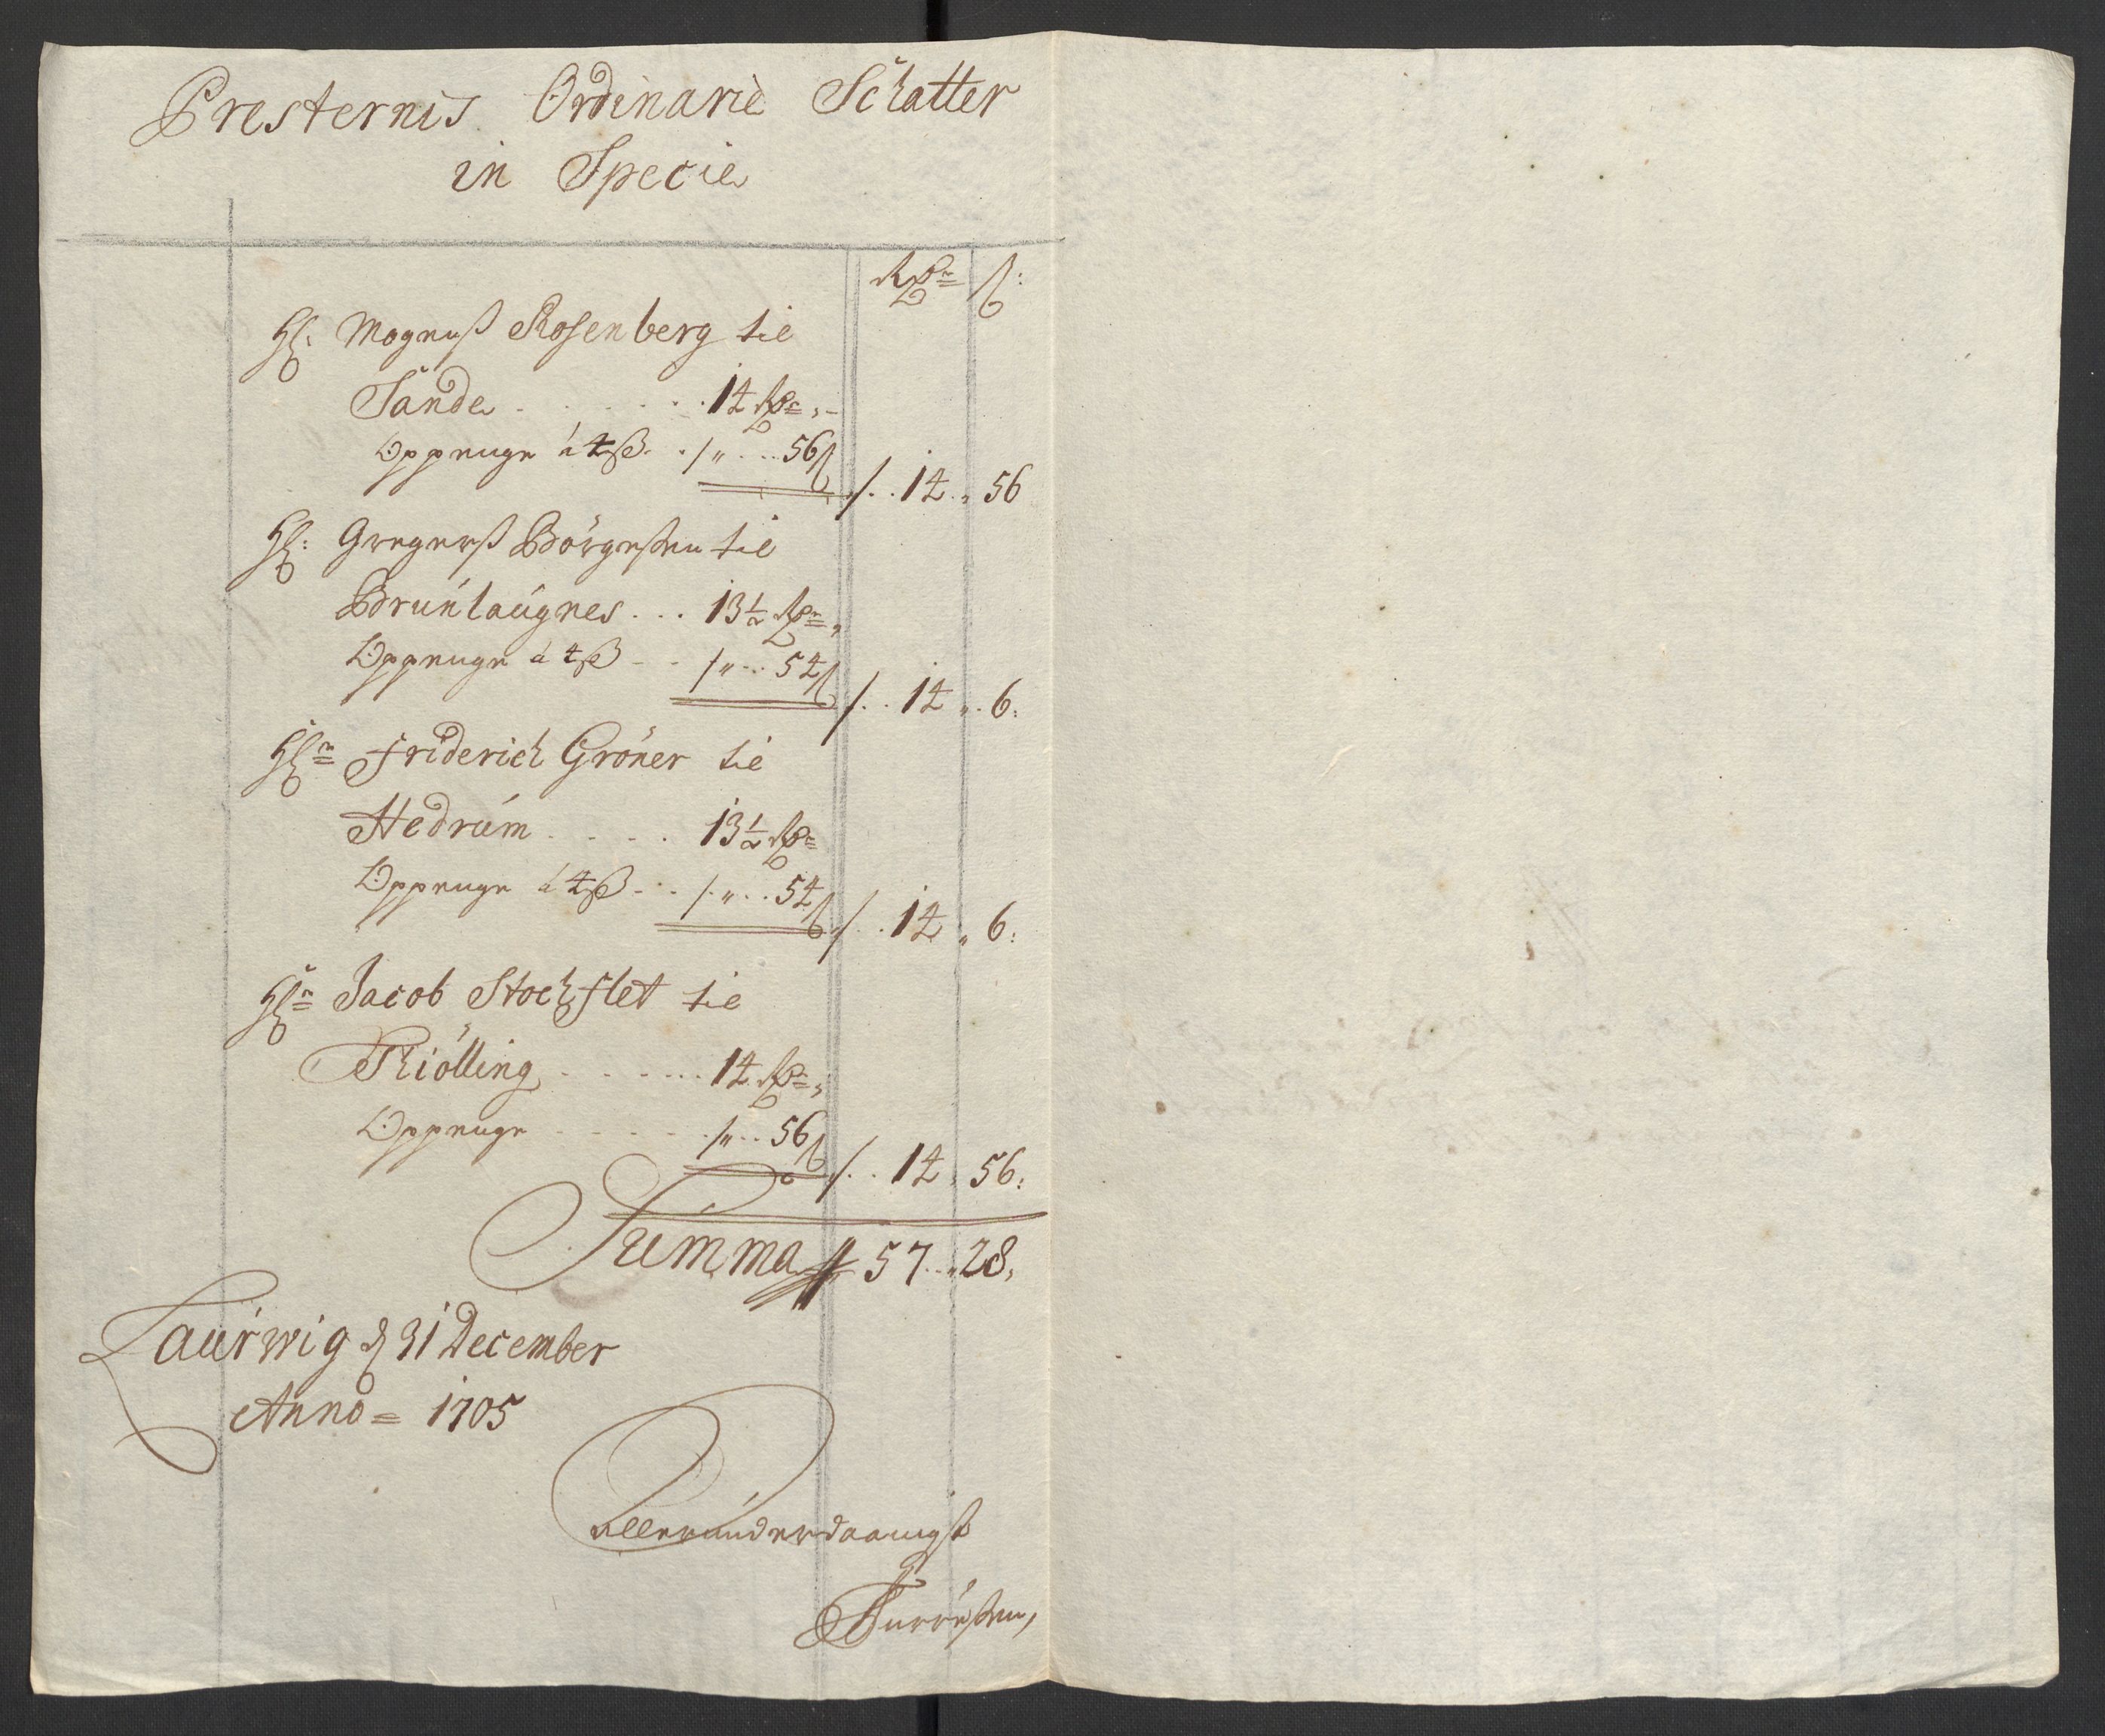 Presternis Ordinarie Schatter
in Specie
Rdr ß:
Hr: Mognuß Rosenberg til
Sande . . . . . . 14 Rdr „ -
Oppenge à 4 ß . . / „ . . . 56 ß /. . 14 „ 56
Hr: Gregerß Börgeßen til
Brúnlaúgnes . . . 13½ Rdr „
Oppenge à 4 ß - - / „ . . . 54 ß /. . 14 „ . 6:
Hr Friderich Gröner til
Hedrúm . . . . 13½ Rdr
Oppenge à 4 ß - . . / „ . . 54 ß /. . 14 „ 6:
Hr Jacob Stochflet til
Thiölling . . . . . . 14 Rdr „
Oppenge . . . . . . / „ . . 56 ß /. . 14 „ 56:
Súmma 57 . . „ 28,
Laúrwig d 31 December
Anno = 1705
allerúnderdaanigst